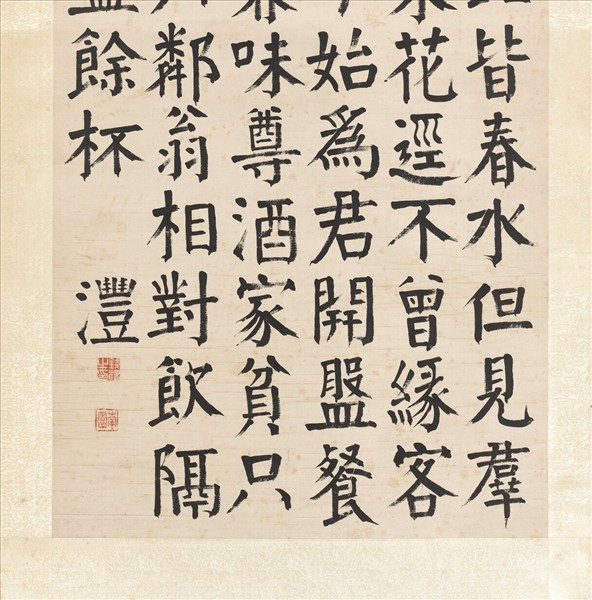 皆春水但見羣
花逕不曾緣客
始爲君開盤餐
味尊酒家貧只
鄰翁相對飲隔
餘杯
灃